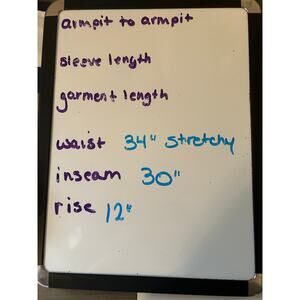 armpit to armpit
sleeve length
garment length
waist 34" stretchy
inseam 30"
rise 12"